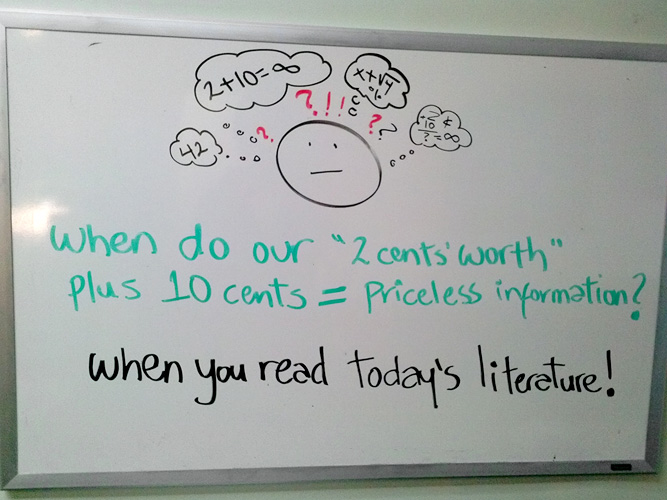 2+10=∞
x+√4
%
?!!
?
?
?
42
2¢
+10
? = ∞
When do our "2 cents' worth"
plus 10 cents = Priceless information?
When you read today's literature!